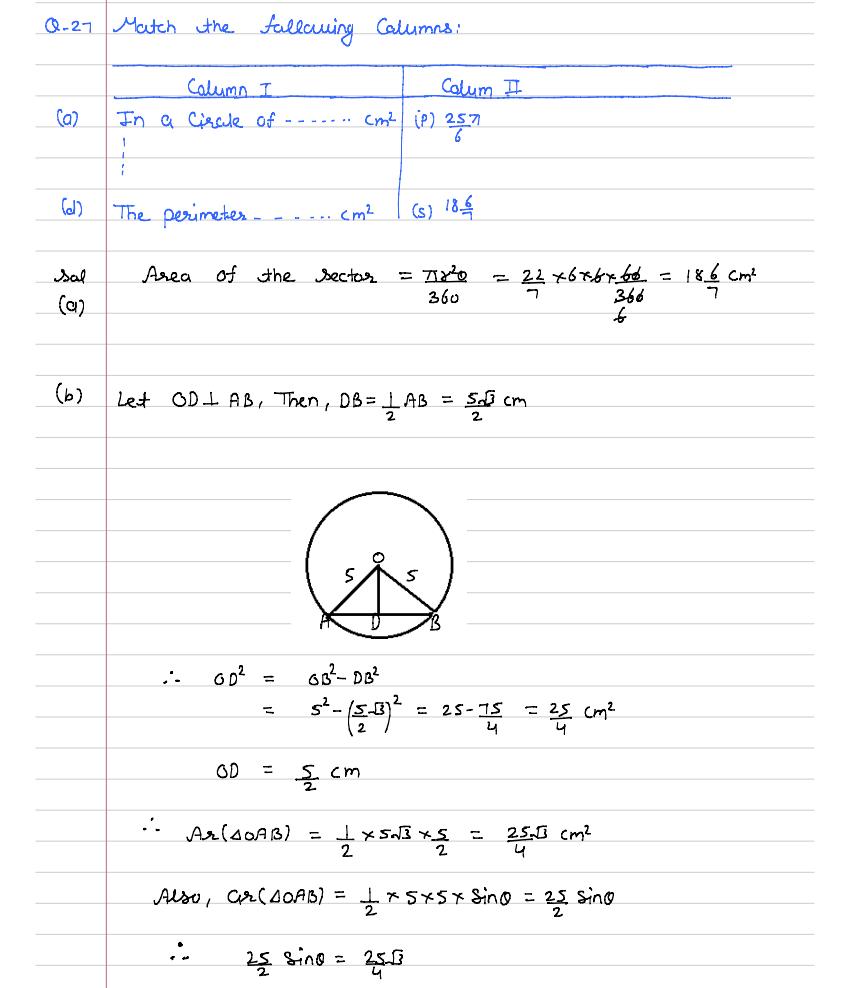 Q-27 Match the following Columns:
Column I Colum II
(a) In a Circle of ------- cm² (p) 25π/6
(d) The perimeter - - - ... cm² (s) 18 6/7
Sol Area of the sector = πr²θ/360 = 22/7 × 6 × 6 × 60/360 = 18 6/7 cm²
(a) 6
(b) Let OD ⊥ AB, Then, DB = 1/2 AB = 5√3/2 cm
O
5 5
A D B
∴ OD² = OB² - DB²
= 5² - (5√3/2)² = 25 - 75/4 = 25/4 cm²
OD = 5/2 cm
∴ Ar(△OAB) = 1/2 × 5√3 × 5/2 = 25√3/4 cm²
Also, ar(△OAB) = 1/2 × 5 × 5 × Sinθ = 25/2 Sinθ
∴ 25/2 Sinθ = 25√3/4